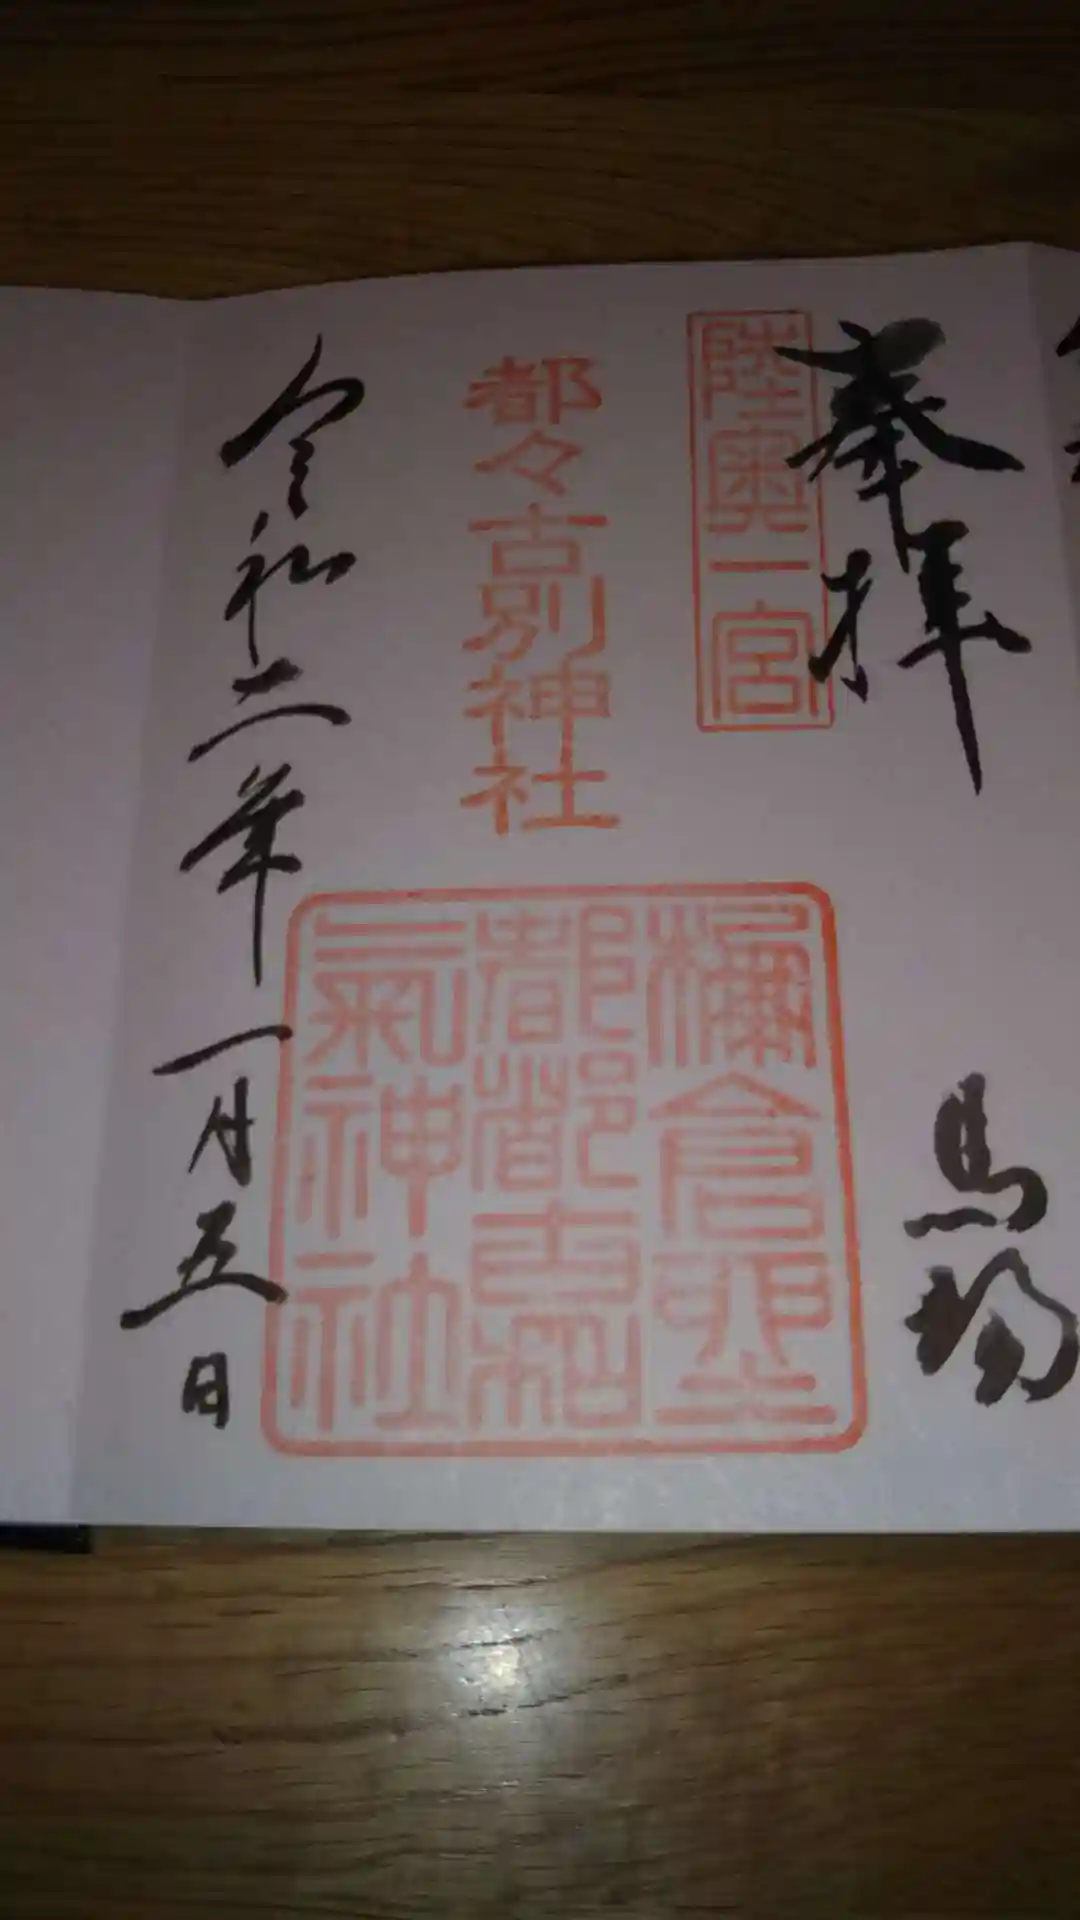 奉拝
馬場
陸奥一宮
都々古別神社
棚倉里
都都古和
氣神社
令和二年一月五日